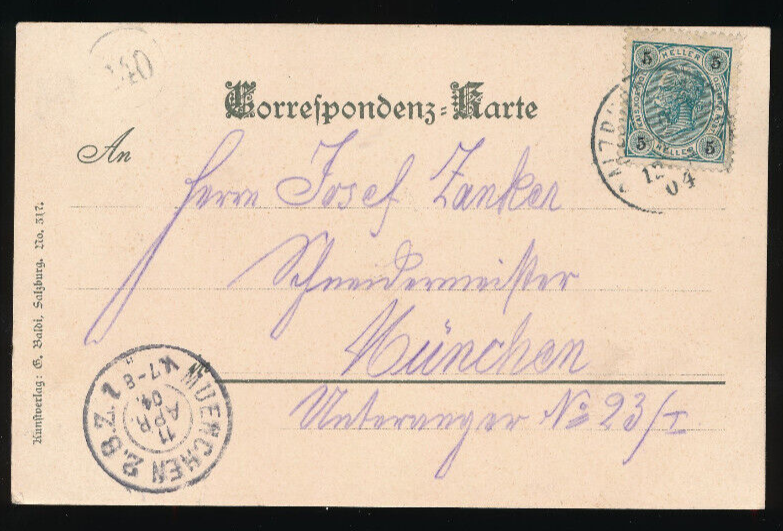 Correspondenz-Karte
An
Herrn Josef Zanker
Schneidermeister
München
Unteranger No 23/I
Kunstverlag: G. Baldi, Salzburg. No. 317.
5 HELLER 5
5 HELLER 5
04
MUENCHEN 2.B.Z.
11
APR.
04.
7-8